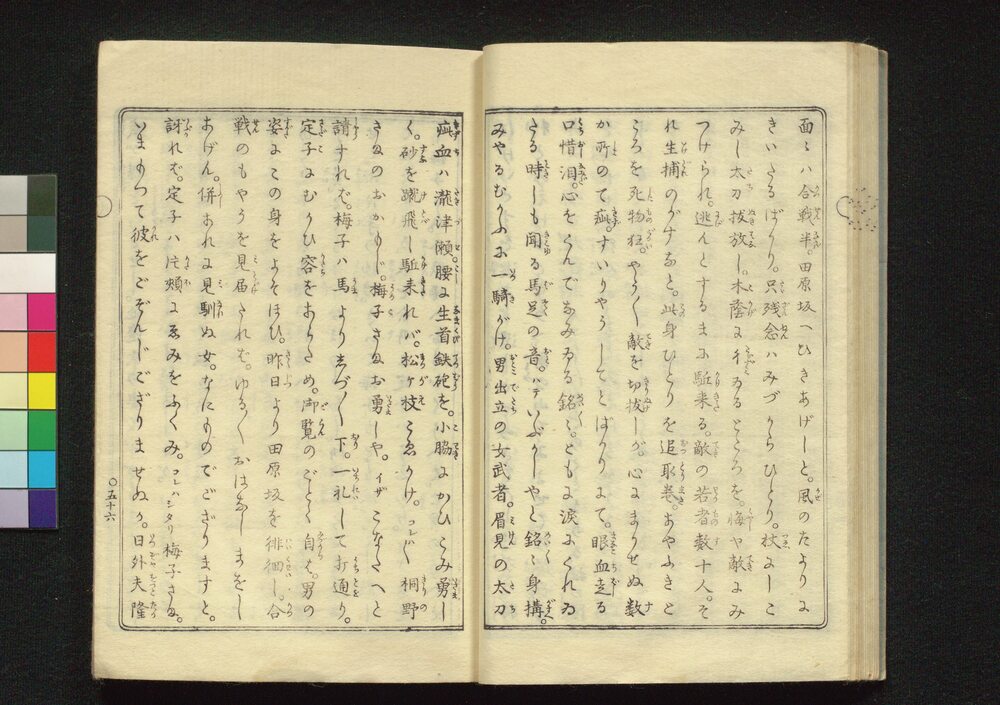 面々ハ合戦半。田原坂へひきあげしと。風のたよりに
きいたるばかり。只残念ハみづからひとり。杖によしこ
みし太刀抜放し。木蔭にイゐるところを。悔や敵にみ
つけられ。逃んとするまに駈来る。敵の若者数十人。そ
れ生捕のがすなと。此身ひとりを追取巻。あやふきと
ころを死物狂。やう〳〵敵を切抜しが。心にまかせぬ数
か所のて疵。すいりやうしてとばかりにて。眼血走る
口惜泪。心をくんでなみゐる銘々。ともに涙にくれゐ
たる時しも聞る馬足の音。ハテいぶかしやと銘々身搆。
みやるむかふに一騎がけ。男出立の女武者。眉見の太刀
疵血ハ瀧津瀬。腰に生首鉄砲を。小脇にかひこみ勇し
く。砂を蹴飛し駈来れバ。松ヶ枝こゑかけ。コレハ〳〵桐野
さまのおかもじ。梅子さまお勇しや。イザこなたへと
請すれバ。梅子ハ馬よりしづ〳〵下。一礼して打通り。
定子にむかひ容をあらため。御覧のごとく自も。男の
姿にこの身をよそほひ。昨日より田原坂を徘徊し。合
戦のもやうを見届たれバ。ゆる〳〵おはなしまをし
あげん。併あれに見馴ぬ女。なにものでござりますと。
訝れバ。定子ハ片頬にゑみをふくみ。コレハシタリ梅子さま。
いまもつて彼をごぞんじござりませぬか。日外夫隆
〇五十六